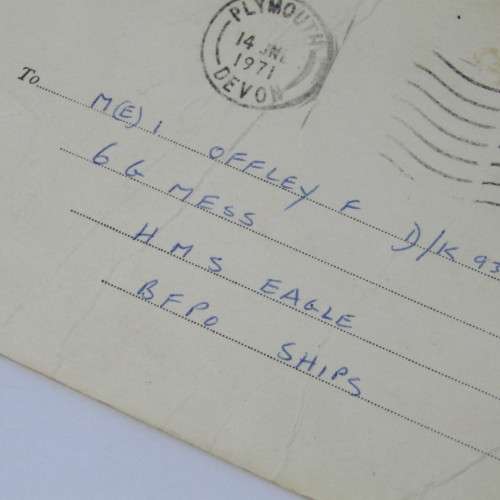 PLYMOUTH
14 JNE
1971
DEVON
To M(E) 1 OFFLEY F D/K 93
6 G MESS
HMS EAGLE
BFPO SHIPS